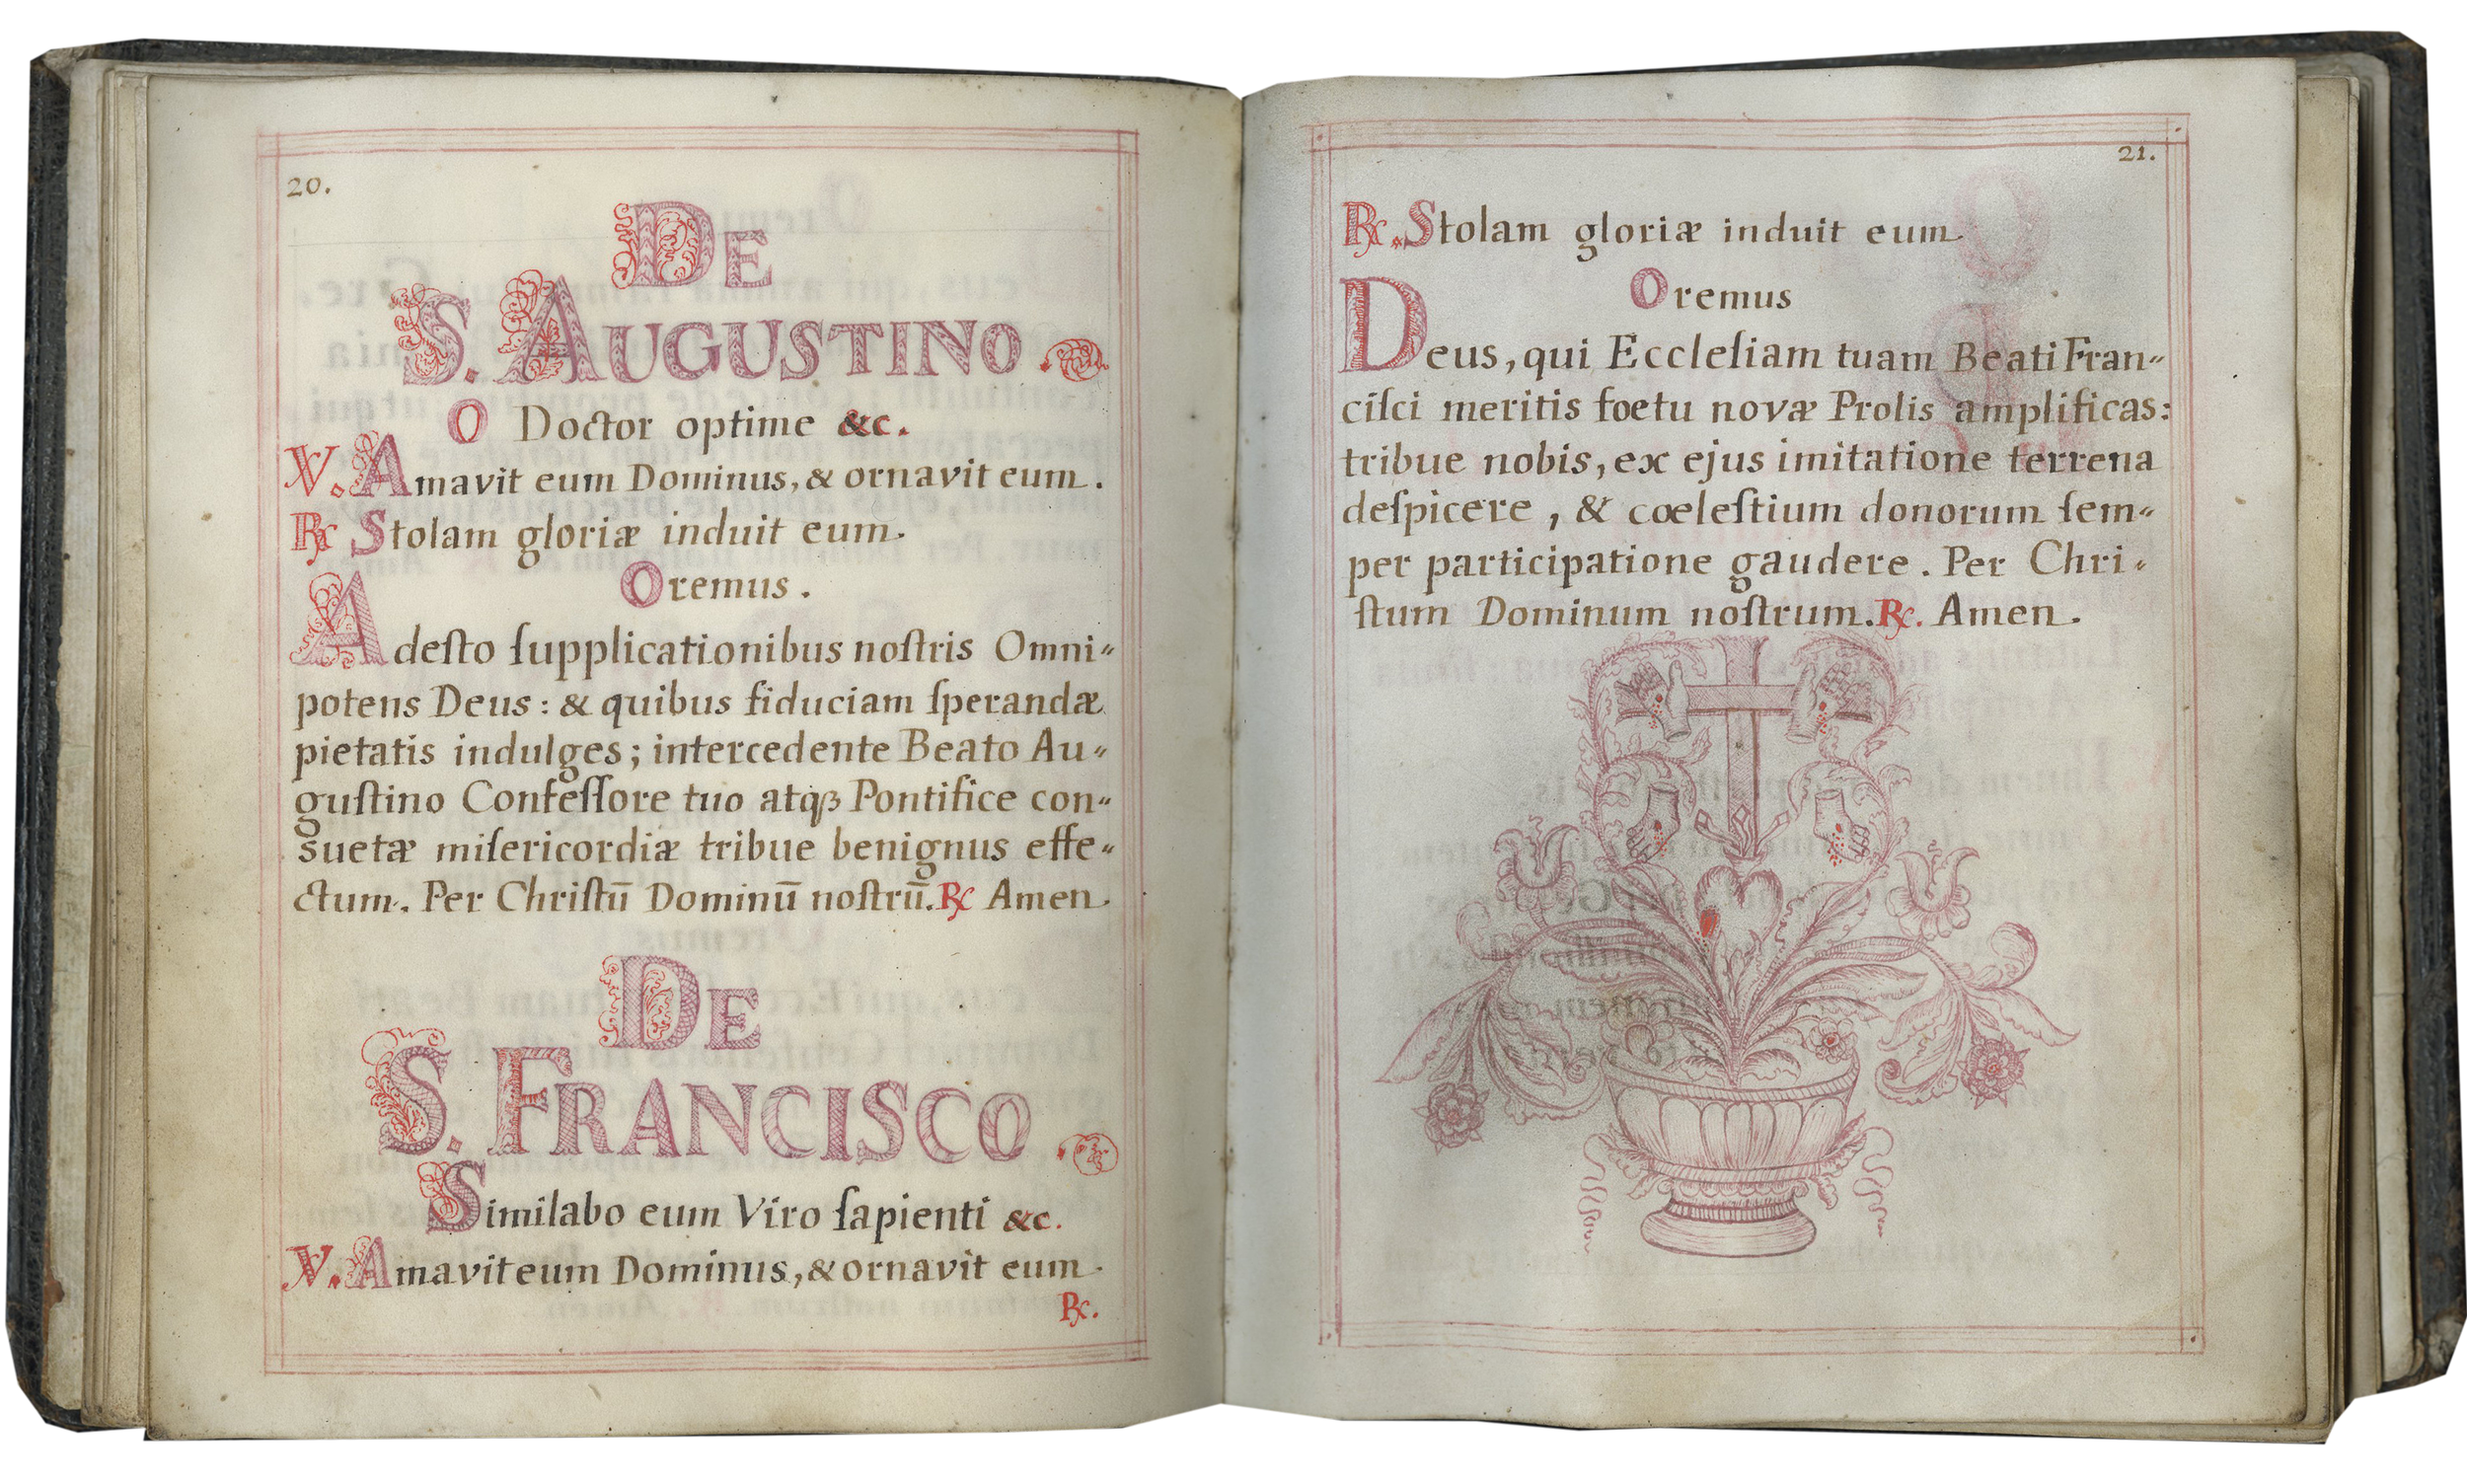 20.
DE
S. AUGUSTINO.
O Doctor optime &c.
℣. Amavit eum Dominus, & ornavit eum.
℟ Stolam gloriæ induit eum.
Oremus.
Adeſto ſupplicationibus noſtris Omni-
potens Deus: & quibus fiduciam ſperandæ
pietatis indulges; intercedente Beato Au-
guſtino Confeſſore tuo atqꝫ Pontifice con-
suetæ miſericordiæ tribue benignus effe-
ctum. Per Chriſtū Dominū noſtrū. ℟ Amen.
DE
S. FRANCISCO
Similabo eum Viro ſapienti &c.
℣. Amavit eum Dominus, & ornavit eum.
℟.
21.
℟. Stolam gloriæ induit eum.
Oremus
Deus, qui Eccleſiam tuam Beati Fran-
ciſci meritis foetu novæ Prolis amplificas:
tribue nobis, ex ejus imitatione terrena
deſpicere, & cœleſtium donorum ſem-
per participatione gaudere. Per Chri-
ſtum Dominum noſtrum. ℟. Amen.